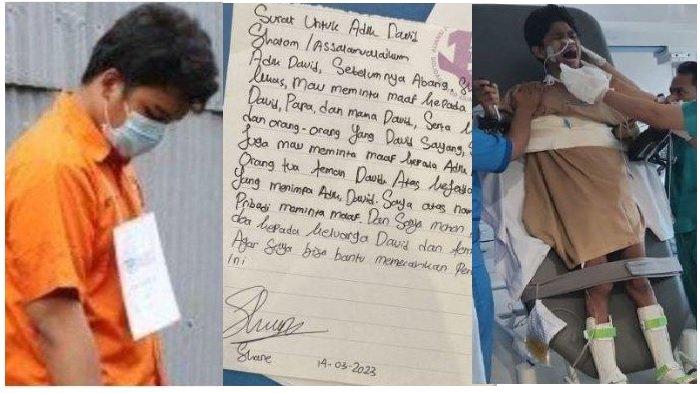 Surat Untuk Adik David
Shalom / Assalamualaikum
Adik David, Sebelumnya Abang,
Lukas, Mau meminta maaf kepada
David, Papa, dan mama David, Serta
dan orang-orang Yang David Sayang,
Juga mau meminta maaf kepada Adik
Orang tua teman David. Atas
Yang menimpa Adik David. Saya atas
Pribadi meminta maaf. Dan Saya mohon
doa kepada keluarga David dan
Agar Saya bisa bantu
Ini
Shane
14-03-2023